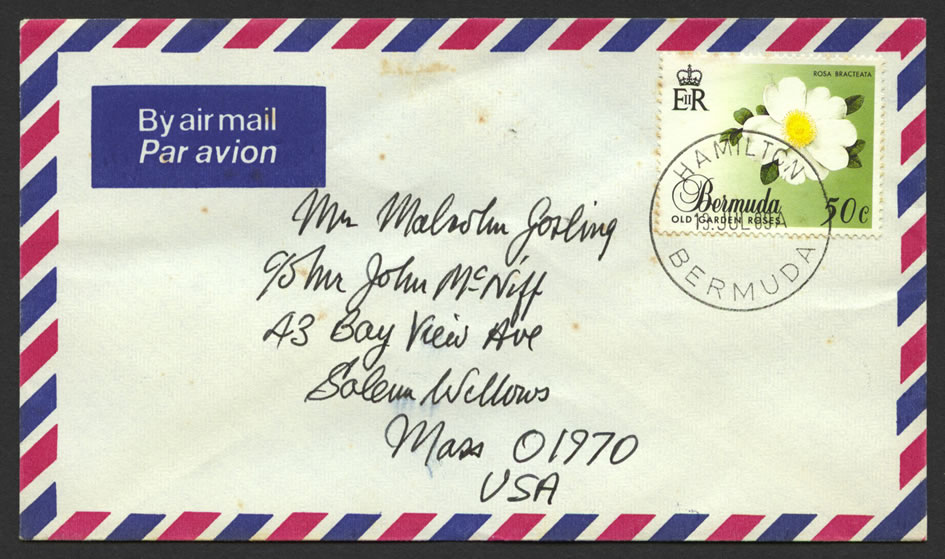 By air mail
Par avion
EIIR
ROSA BRACTEATA
Bermuda
OLD GARDEN ROSES
50c
HAMILTON
BERMUDA
Mr Malcolm Gosling
c/o Mr John McNiff
43 Bay View Ave
Salem Willows
Mass 01970
USA